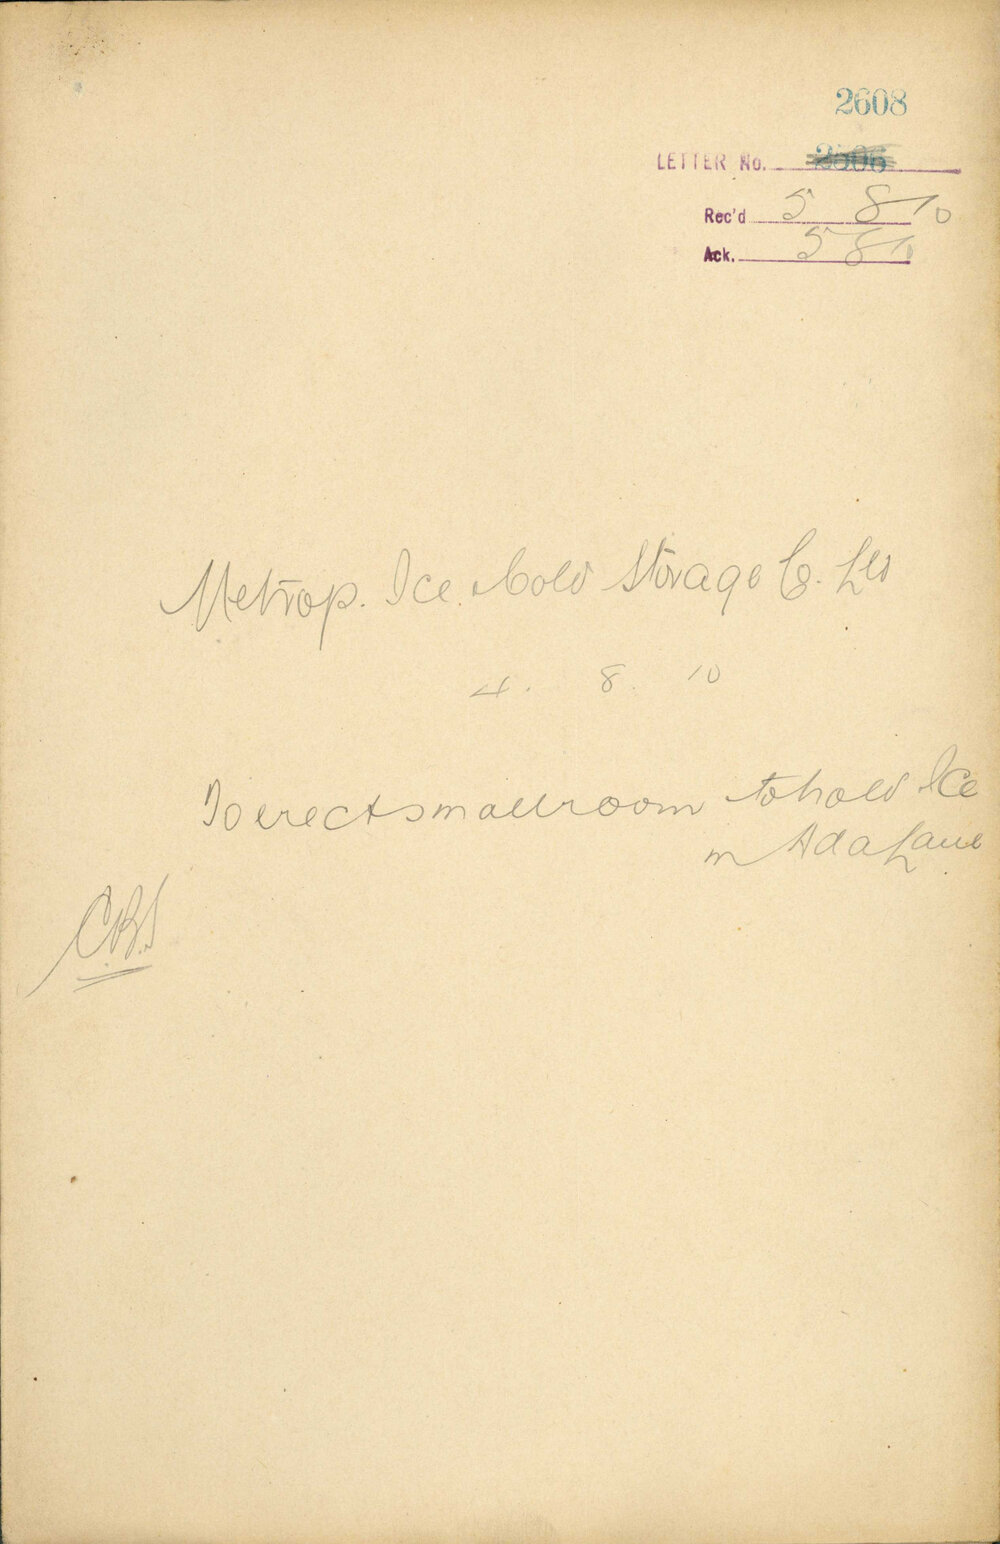 2608
LETTER No. 2506
Rec'd 5 8 10
Ack. 5 8 10
Metrop. Ice & Cold Storage Co. Ltd
4. 8. 10
To erect small room to hold Ice
in Ada Lane
C.B.S